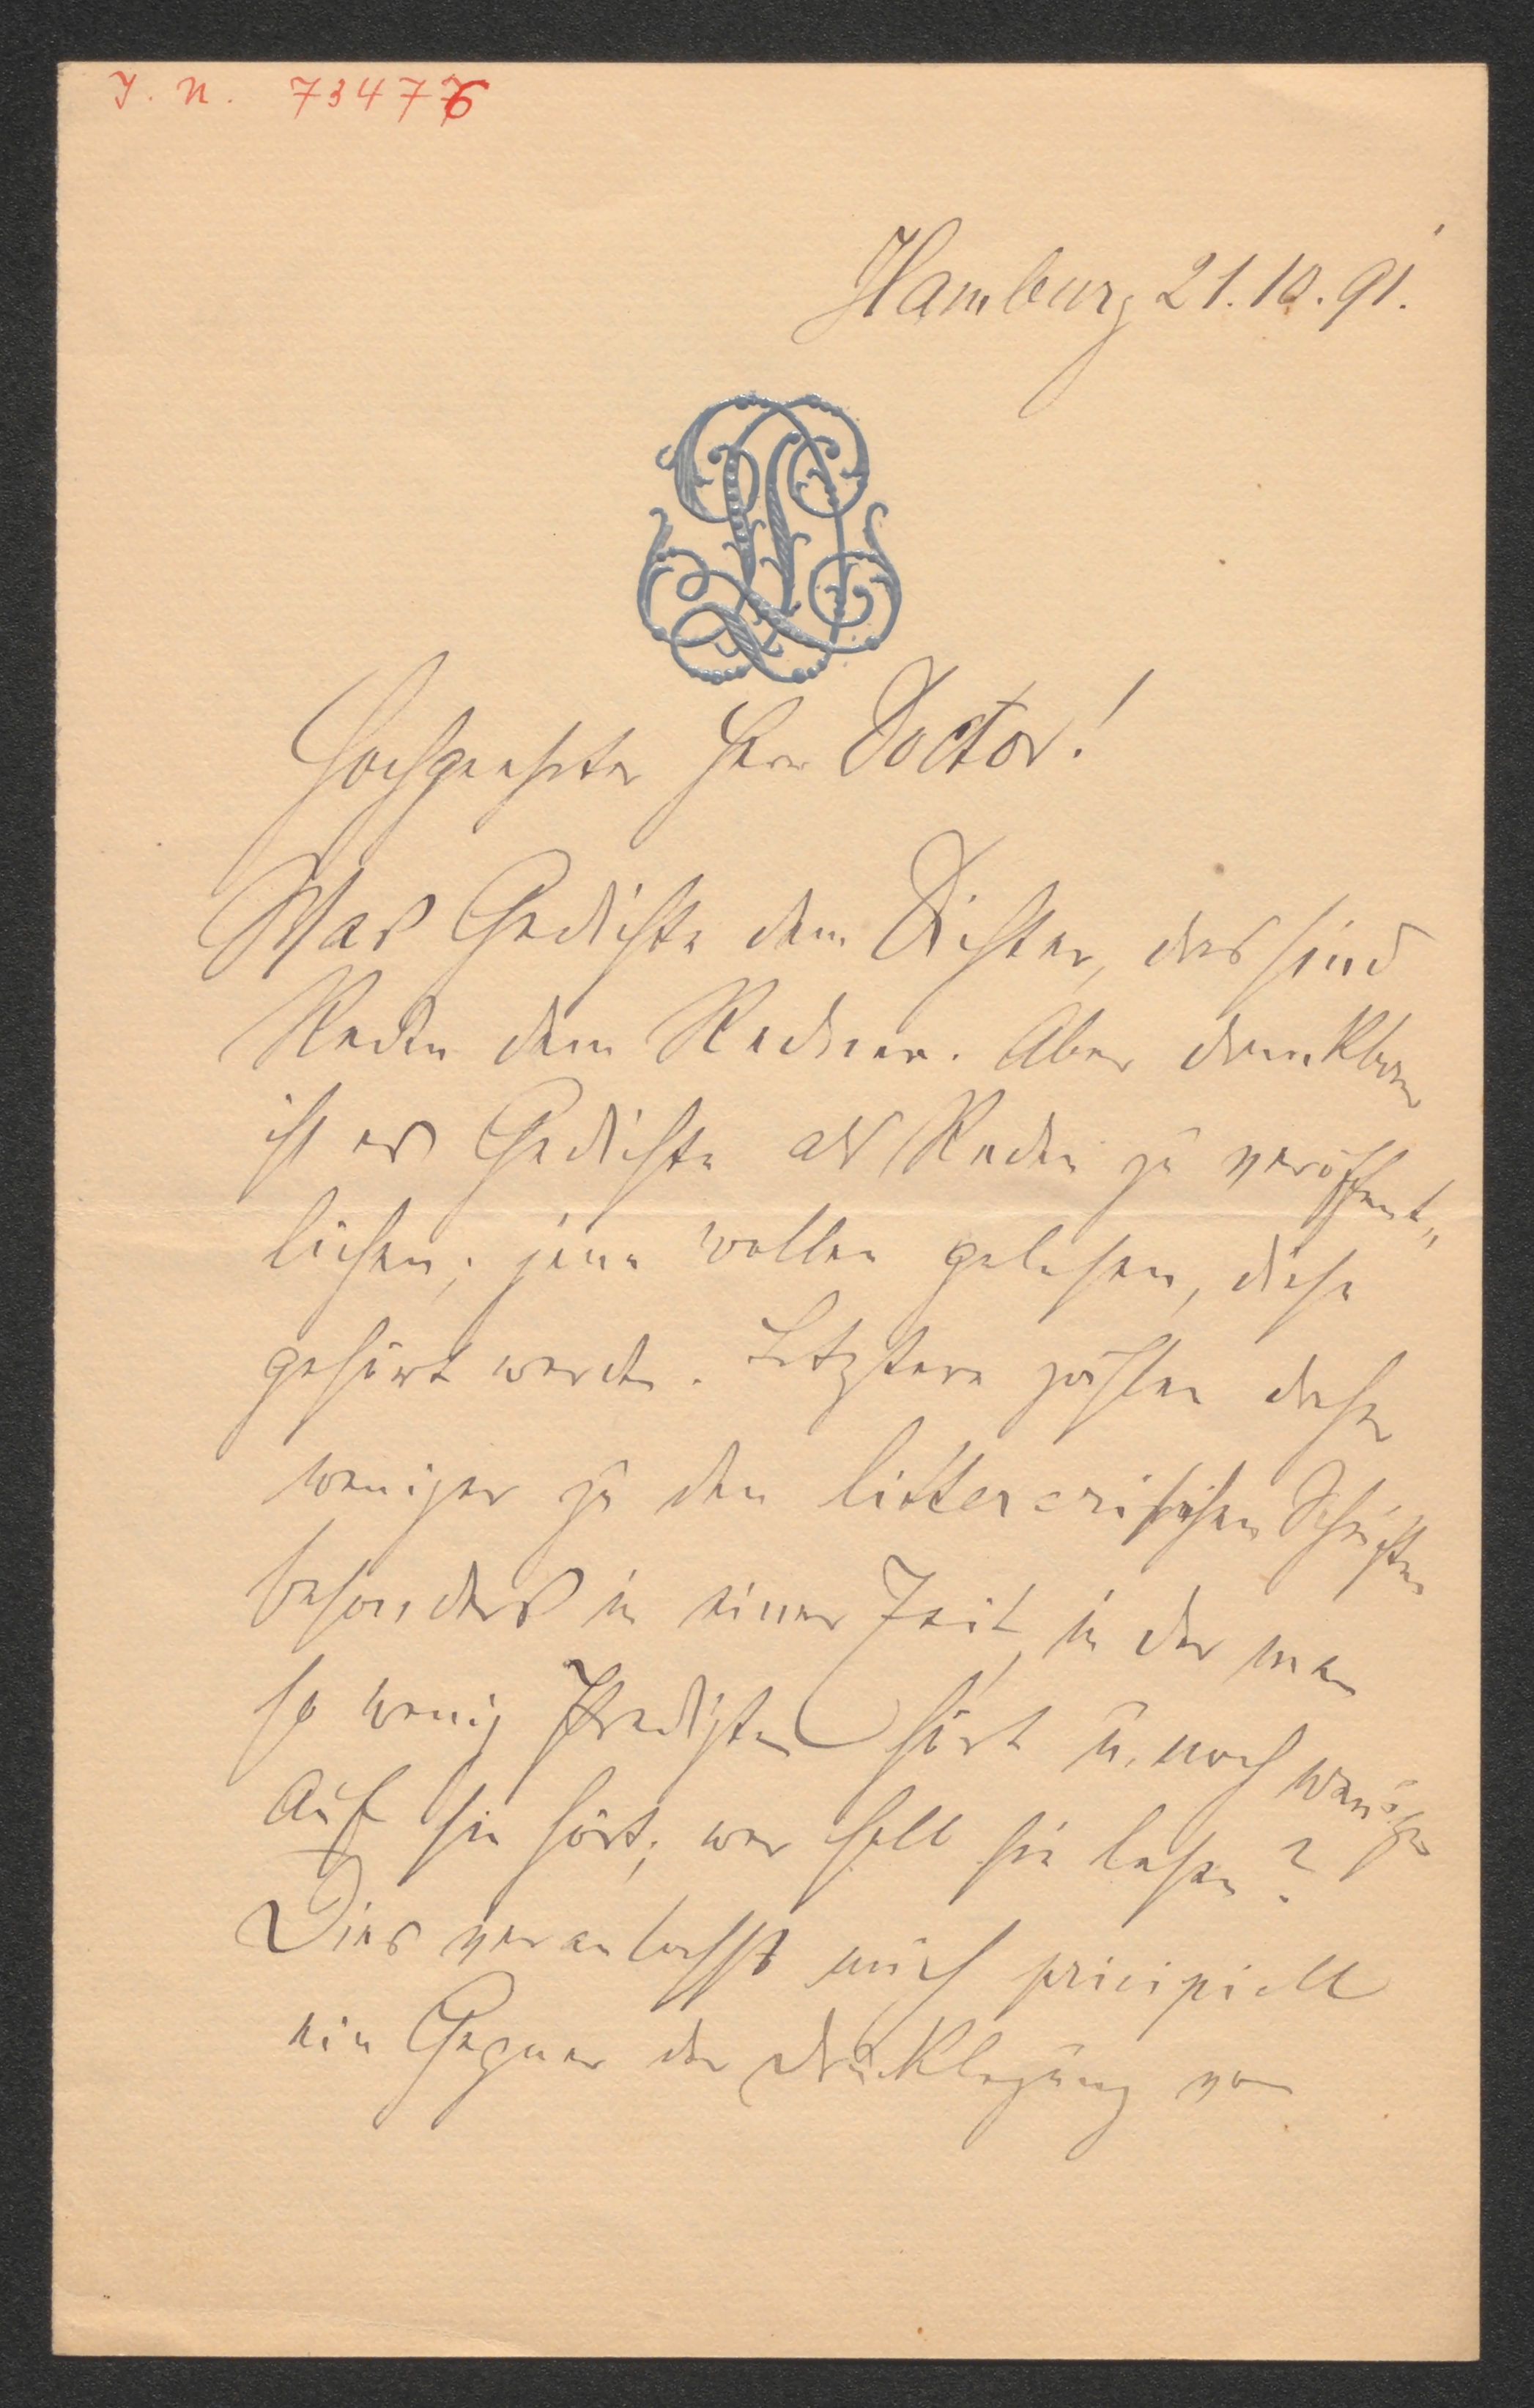 J. N. 73476
Hamburg 21.10.91.
Hochgeehrter Herr Doctor!
Was Gedichte dem Dichter, das sind
Reden dem Redner. Aber dankbarer
ist es Gedichte als Reden zu veröffent„
lichen; jene wollen gelesen, diese
gehört werden. Letztere zählen daher
weniger zu den litterarischen Schriften
besonders in einer Zeit, in der man
so wenig Predigten hört u. noch weniger
auf sie hört; wer soll sie lesen?
Dies veranlasst mich principiell
ein Gegner der Drucklegung von